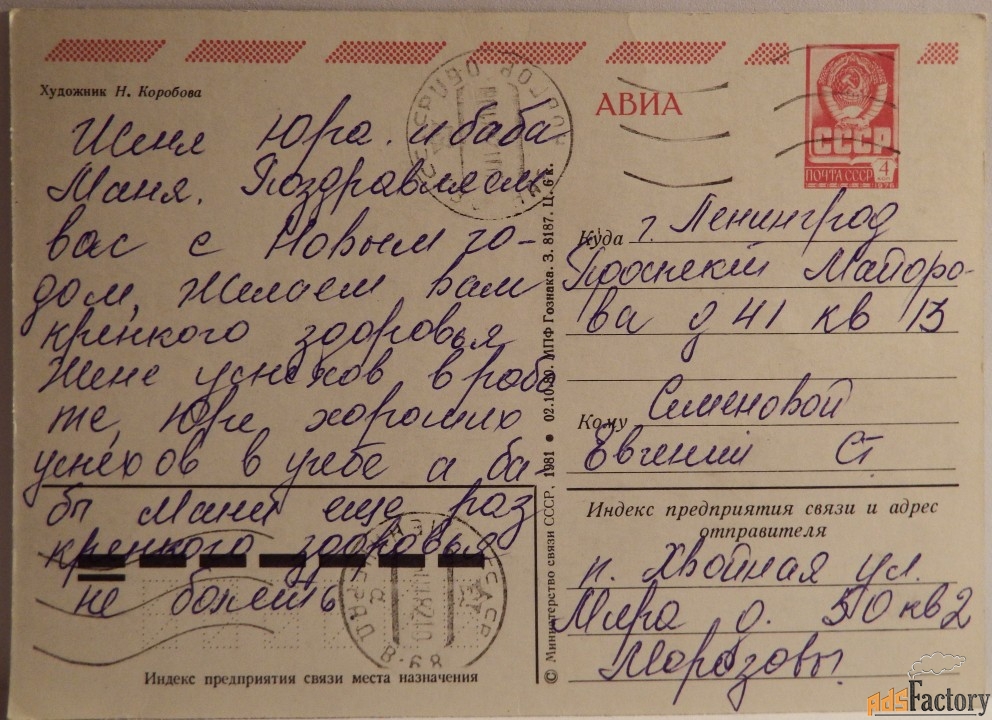 Художник Н. Коробова
АВИА
СССР
ПОЧТА СССР 4
Женя Юра и баба
Маня. Поздравляем
вас с Новым го-
дом, желаем вам
крепкого здоровья
Жене успехов в рабо
те, Юре хороших
успехов в учебе а ба-
бы Мани еще раз
крепкого здоровья
не болеть
Индекс предприятия связи места назначения
© Министерство связи СССР, 1981 ● 02.10.80. МПФ Гознака. З. 8187. Ц. 6 к.
Куда г. Ленинград
Проспект Майоро-
ва д 41 кв 13
Семеновой
Кому
Евгении Ст
Индекс предприятия связи и адрес
отправителя
п. Хвойная ул.
Мира д. 50 кв 2
Морозовы.
AdsFactory